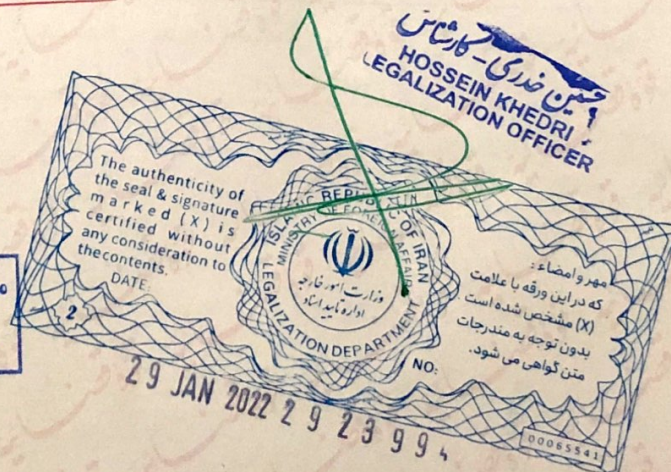 حسین خدری - کارشناس
HOSSEIN KHEDRI
LEGALIZATION OFFICER
The authenticity of
the seal & signature
marked (X) is
certified without
any consideration to
the contents.
DATE:
2
ISLAMIC REPUBLIC OF IRAN
MINISTRY OF FOREIGN AFFAIRS
وزارت امور خارجه
اداره تایید اسناد
LEGALIZATION DEPARTMENT
NO:
مهر و امضاء :
که در این ورقه با علامت
(X) مشخص شده است
بدون توجه به مندرجات
متن گواهی می شود.
29 JAN 2022 2 9 2 3 9 9 4
00065541